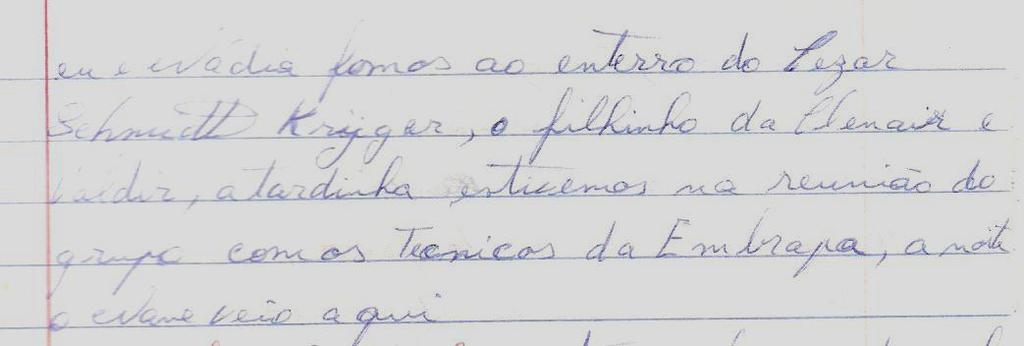 eu e Nádia fomos ao enterro do Cezar
Schmidt Krüger, o filhinho da Clenair e
Valdir, a tardinha estivemos na reunião do
grupo com os Tecnicos da Embrapa, a noite
o veio aqui